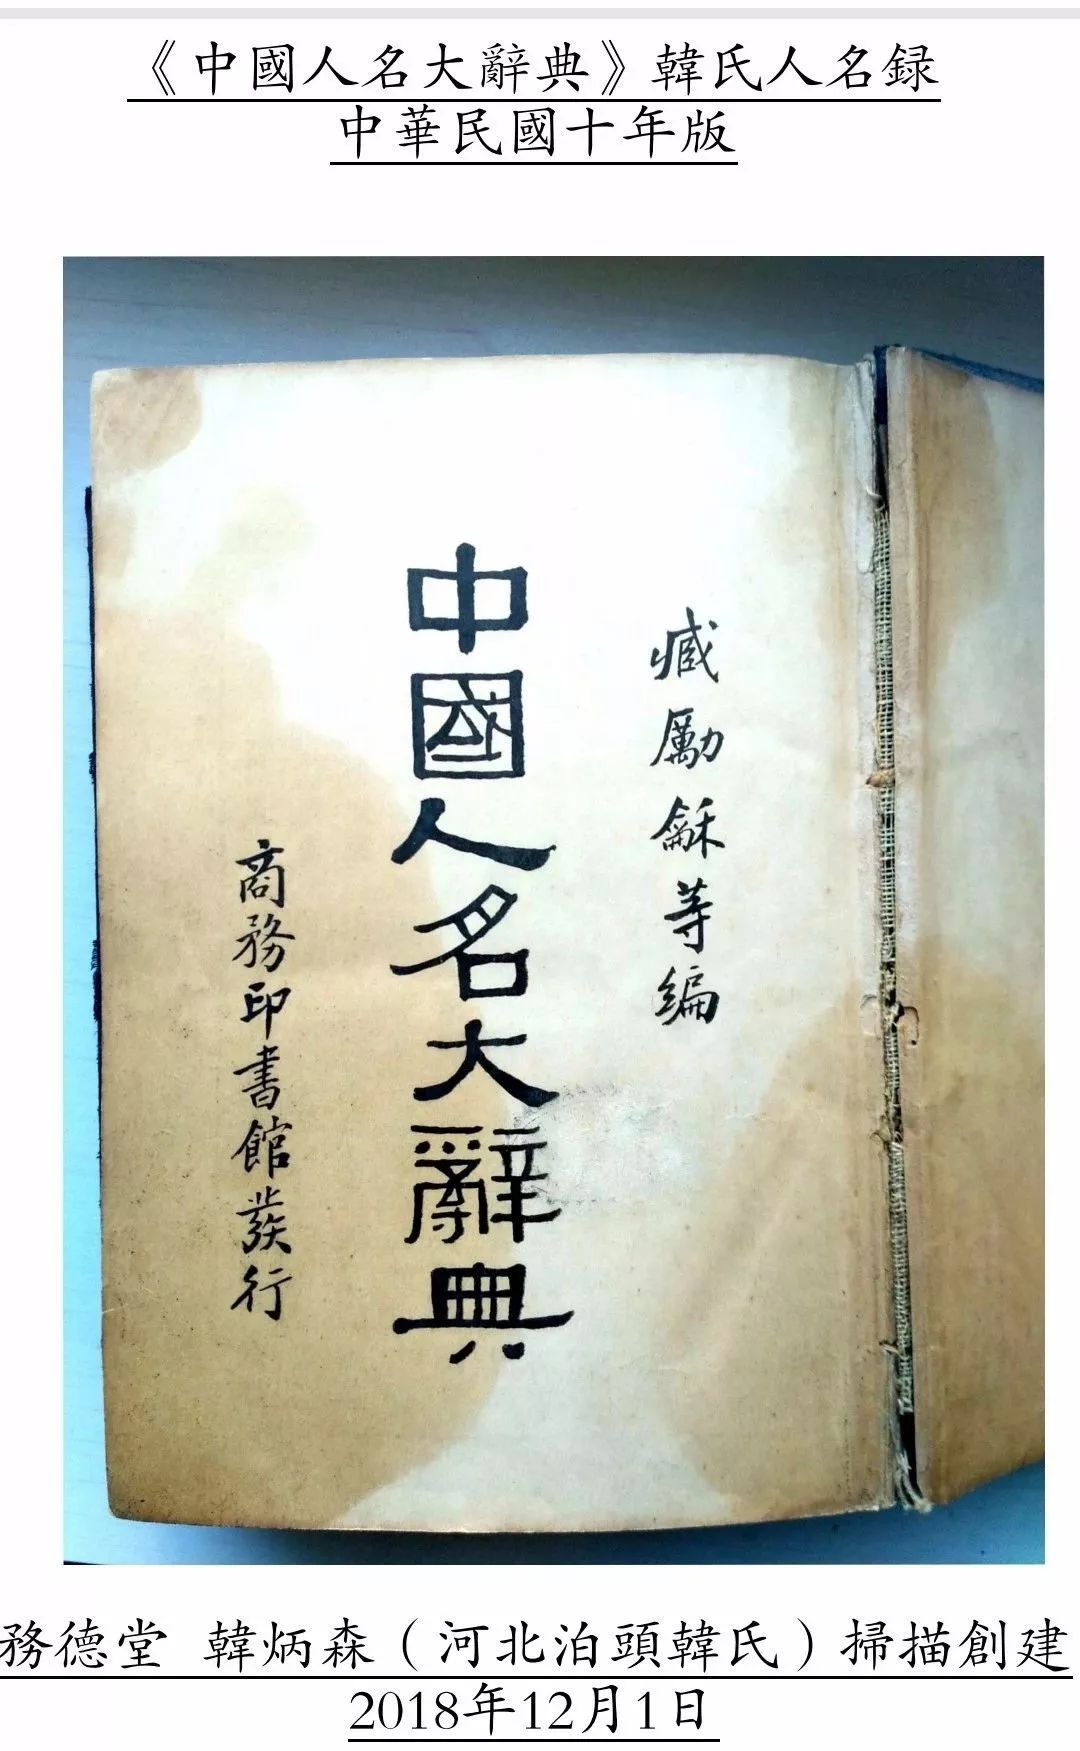 《中國人名大辭典》韓氏人名録
中華民國十年版
臧勵龢等編
中國人名大辭典
商務印書館發行
務德堂 韓炳森（河北泊頭韓氏）掃描創建
2018年12月1日